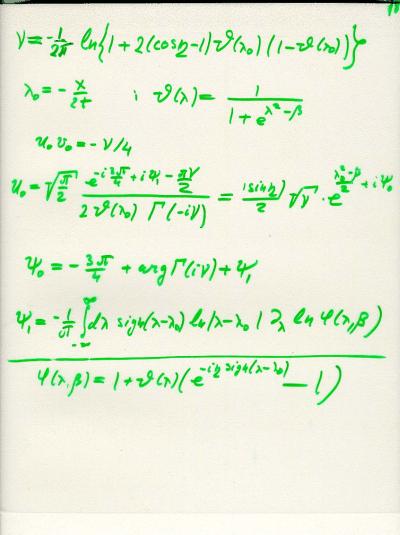 ν = -1/2π ln{1 + 2(cos η - 1) ϑ(λ₀) (1 - ϑ(λ₀))}
λ₀ = - x/2t ; ϑ(λ) = 1/(1 + e^(λ² - β))
u₀ v₀ = - ν/4
u₀ = √π/2 e^(-i 3π/4 + iΨ₁ - πν/2) / (2 ϑ(λ₀) Γ(-iν)) = |sin η/2| √ν · e^(λ₀² - β / 2 + iΨ₀)
Ψ₀ = - 3π/4 + arg Γ(iν) + Ψ₁
Ψ₁ = - 1/π ∫_{-∞}^{∞} dλ sign(λ - λ₀) ln|λ - λ₀| ∂_λ ln φ(λ, β)
φ(λ, β) = 1 + ϑ(λ) (e^(-iη sign(λ - λ₀)) - 1)